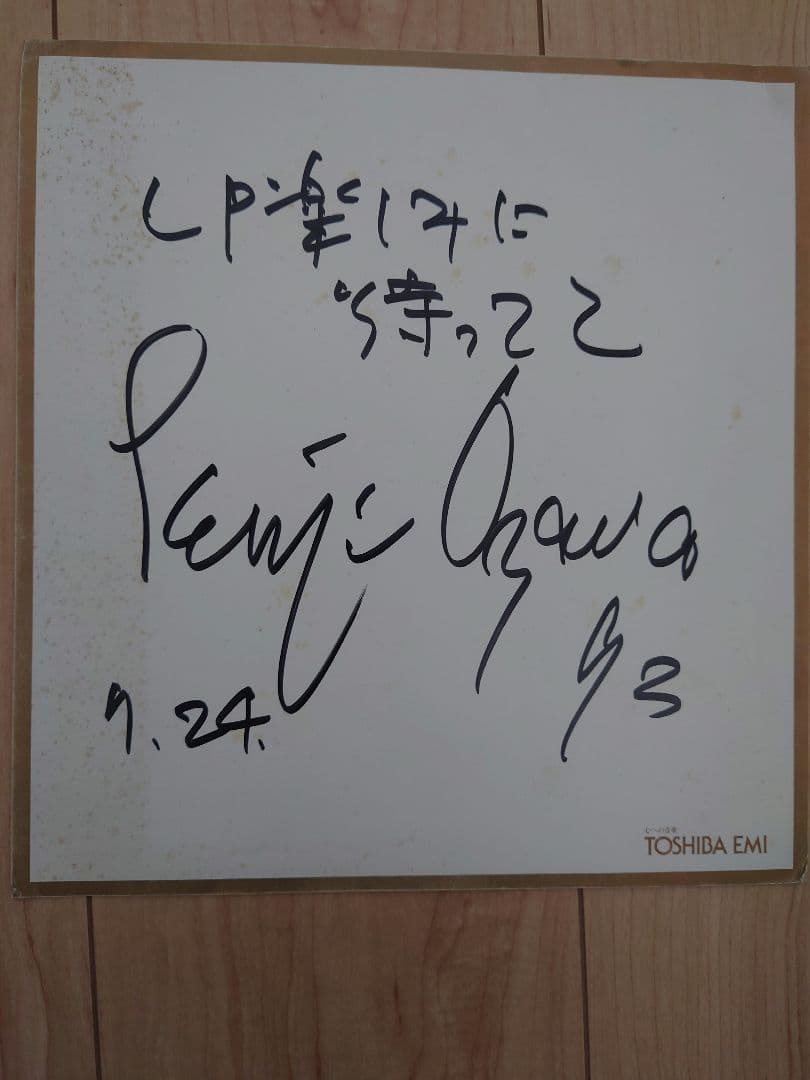 LP楽しみに
待ってて
Kenji Ozawa
7.24. 93
心への音楽
TOSHIBA EMI